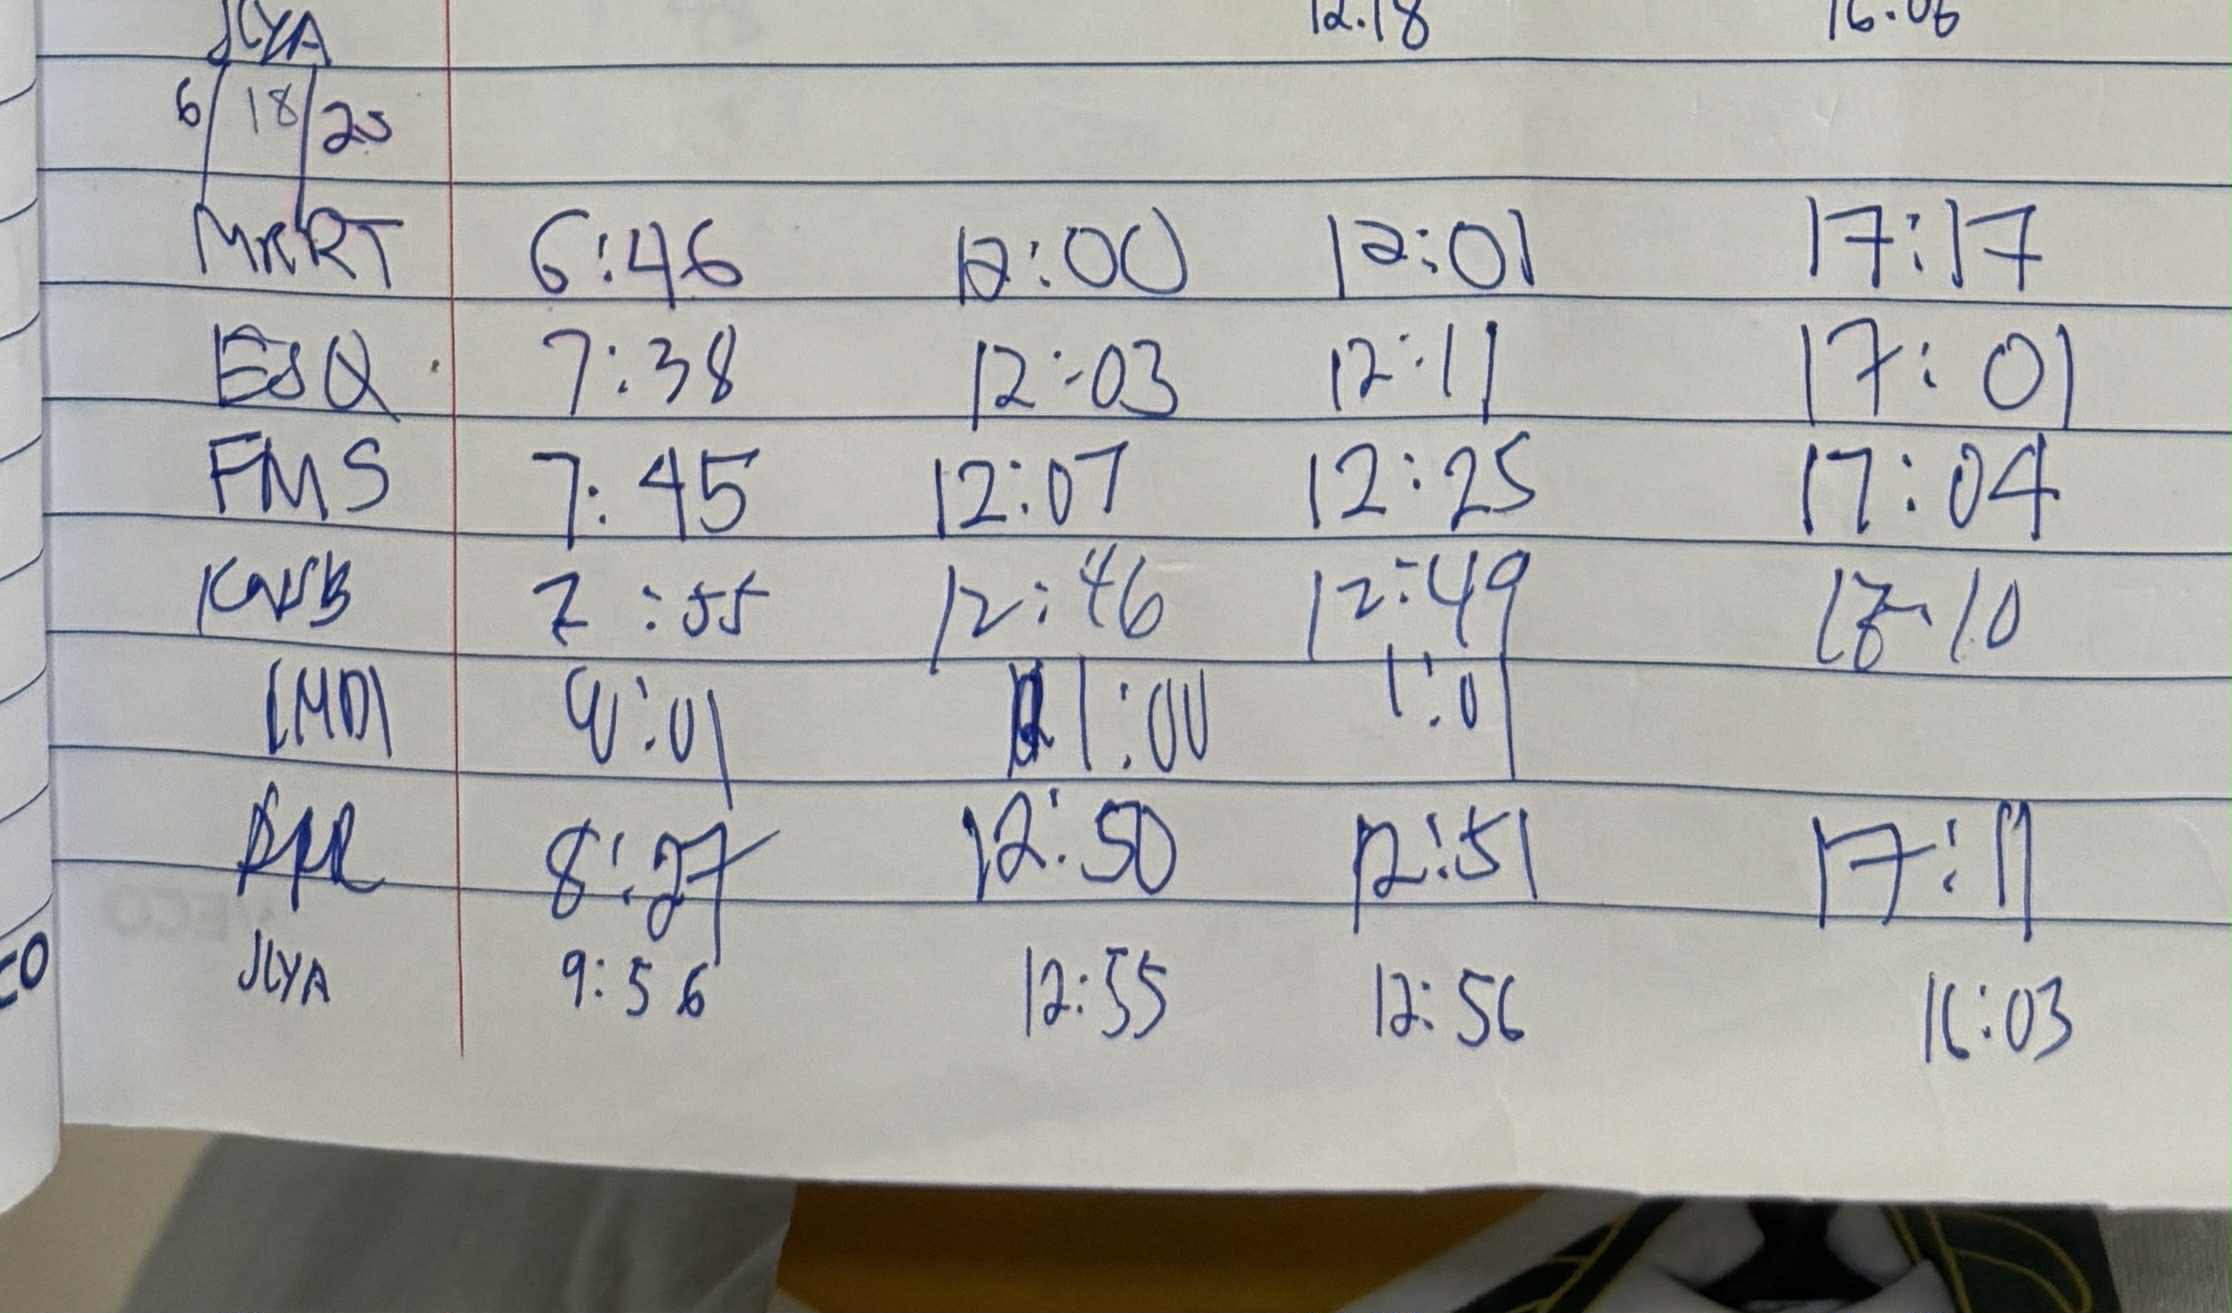 JLYA 12.18 16.06
6/18/25
MRRT 6:46 12:00 12:01 17:17
ESQ 7:38 12:03 12:11 17:01
FMS 7:45 12:07 12:25 17:04
7:55 12:46 12:49 17:10
9:01 1:00 1:01
8:27 12:50 12:51 17:11
JLYA 9:56 12:55 12:56 16:03